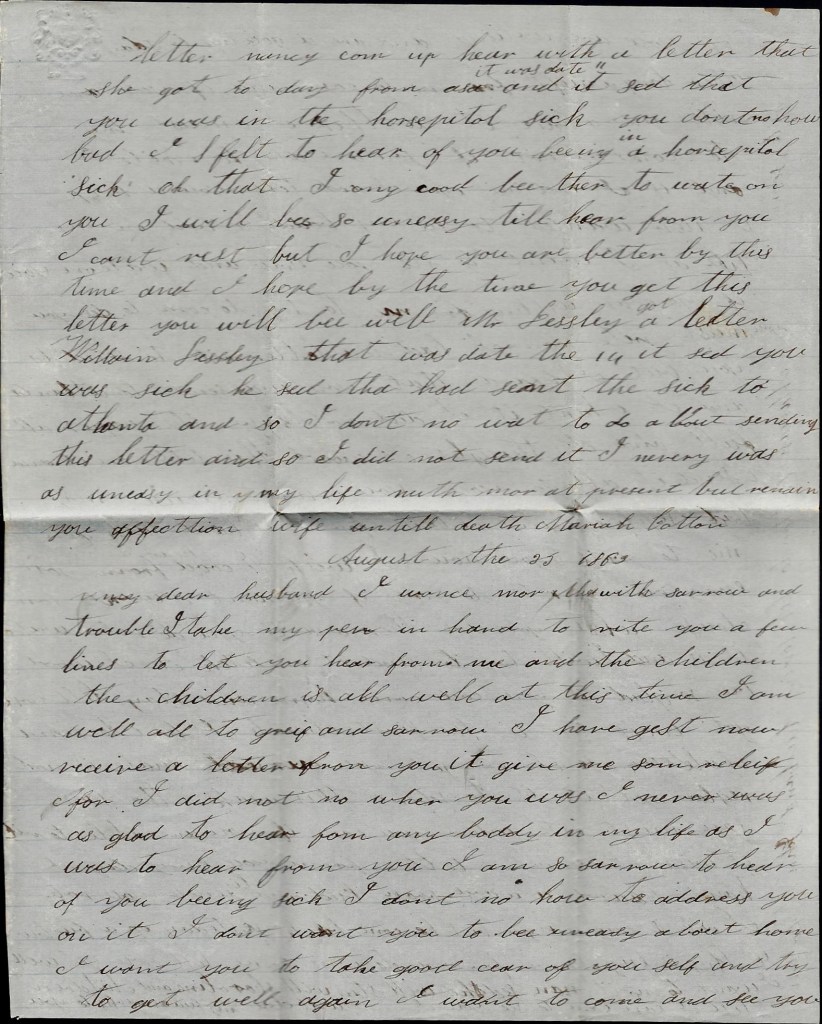 letter nancy com up hear with a letter that
it was date "
she got to day from asa and it sed that
you was in the horsepitol sick you dont no how
in
bad I I felt to hear of you beeing a horsepitol
sick oh that I ony cood bee ther to wate on
you I will bee so uneasy till hear from you
I cant rest but I hope you are better by this
time and I hope by the time you get this
got
letter you will bee will Mr Lessley a letter
Willain Lessley that was date the it sed you
was sick he sed tha had seant the sick to
atlanta and so I dont no wat to do about sending
this letter and so I did not send it I nevery was
as uneasy in my life nuth mor at present but remain
you affecttion wife untill death Mariah Cotton
August the 25 1863
my dear husband I wonce mor with sarrow and
trouble I take my pen in hand to rite you a few
lines to let you hear from me and the children
the children is all well at this time I am
well all to greif and sarrow I have gest now
receive a letter from you it give me som releif
for I did not no wher you was I never was
as glad to hear fom any boddy in my life as I
was to hear from you I am so sarrow to hear
of you beeing sick I dont no how to address you
on it I dont want you to bee uneady about home
I want you to take good cear of you self and try
to get well again I want to come and see you